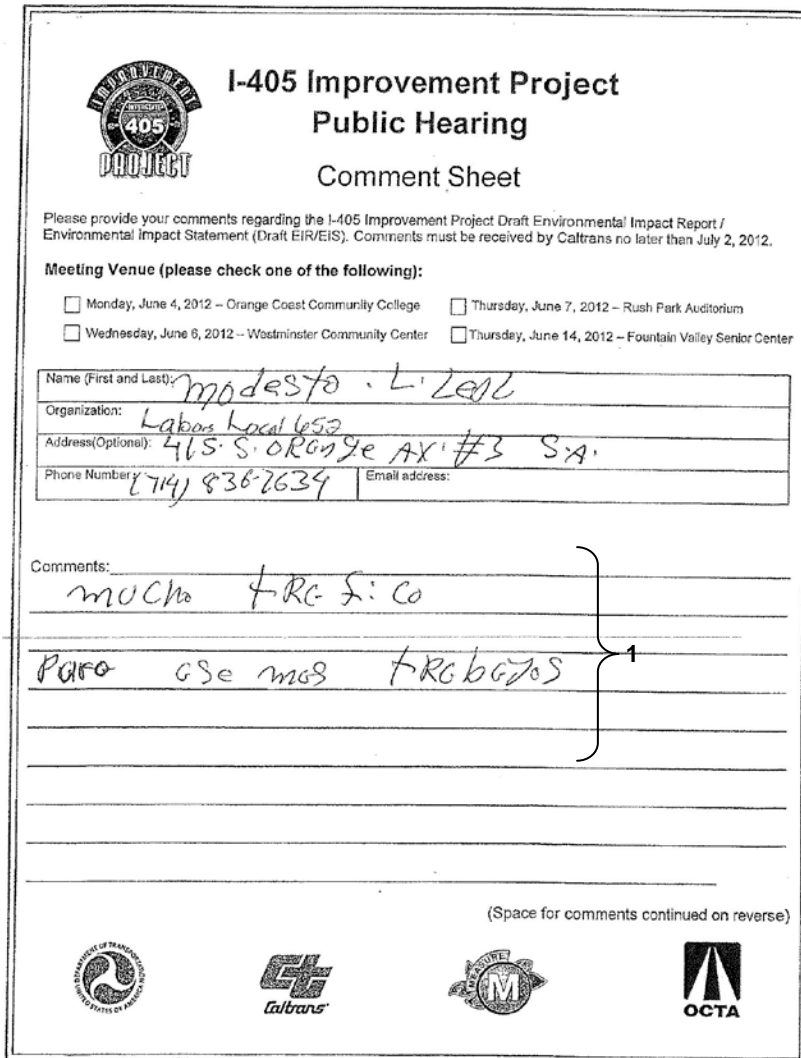 IMPROVEMENT
INTERSTATE
405
PROJECT
I-405 Improvement Project
Public Hearing
Comment Sheet
Please provide your comments regarding the I-405 Improvement Project Draft Environmental Impact Report /
Environmental Impact Statement (Draft EIR/EIS). Comments must be received by Caltrans no later than July 2, 2012.
Meeting Venue (please check one of the following):
Monday, June 4, 2012 – Orange Coast Community College
Thursday, June 7, 2012 – Rush Park Auditorium
Wednesday, June 6, 2012 – Westminster Community Center
Thursday, June 14, 2012 – Fountain Valley Senior Center
Name (First and Last): modesto . L.
Organization: Labors Local 652
Address(Optional): 415. S. ORange AV. #3 S.A.
Phone Number: (714) 836-2634 Email address:
Comments:
mucho tRafico
1
Para ase mas tRabajos
(Space for comments continued on reverse)
DEPARTMENT OF TRANSPORTATION
UNITED STATES OF AMERICA
Caltrans
MEASURE
M
OCTA